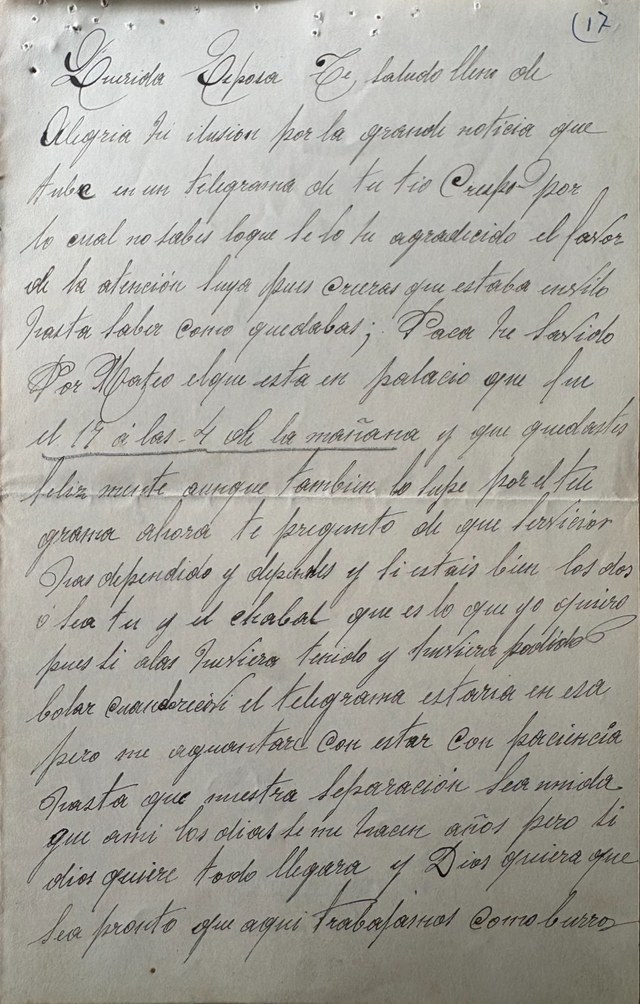 (17
Querida Esposa Te, saludo lleno de
Alegria he ilusion por la grande noticia que
tube en un telegrama de tu tio Crespo por
lo cual no sabes loque se lo he agradecido el favor
de la atención suya pues creeras que estaba envilo
hasta saber como quedabas; Paca he savido
Por Mateo elque esta en palacio que fue
el 17 á las 4 de la mañana y que quedastes
feliz mente aunque tambien lo supe por el tele
grama ahora te pregunto de que servicios
has dependido y dependes y si estais bien los dos
ó sea tu y el chabal que es lo que yo quiero
pues si alas huviera tenido y huviera podido
bolar cuando recivi el telegrama estaria en esa
pero me aguantare con estar con paciencia
hasta que nuestra separación sea unida
que ami los dias se me hacen años pero si
dios quiere todo llegara y Dios quiera que
sea pronto que aqui trabajamos como burros